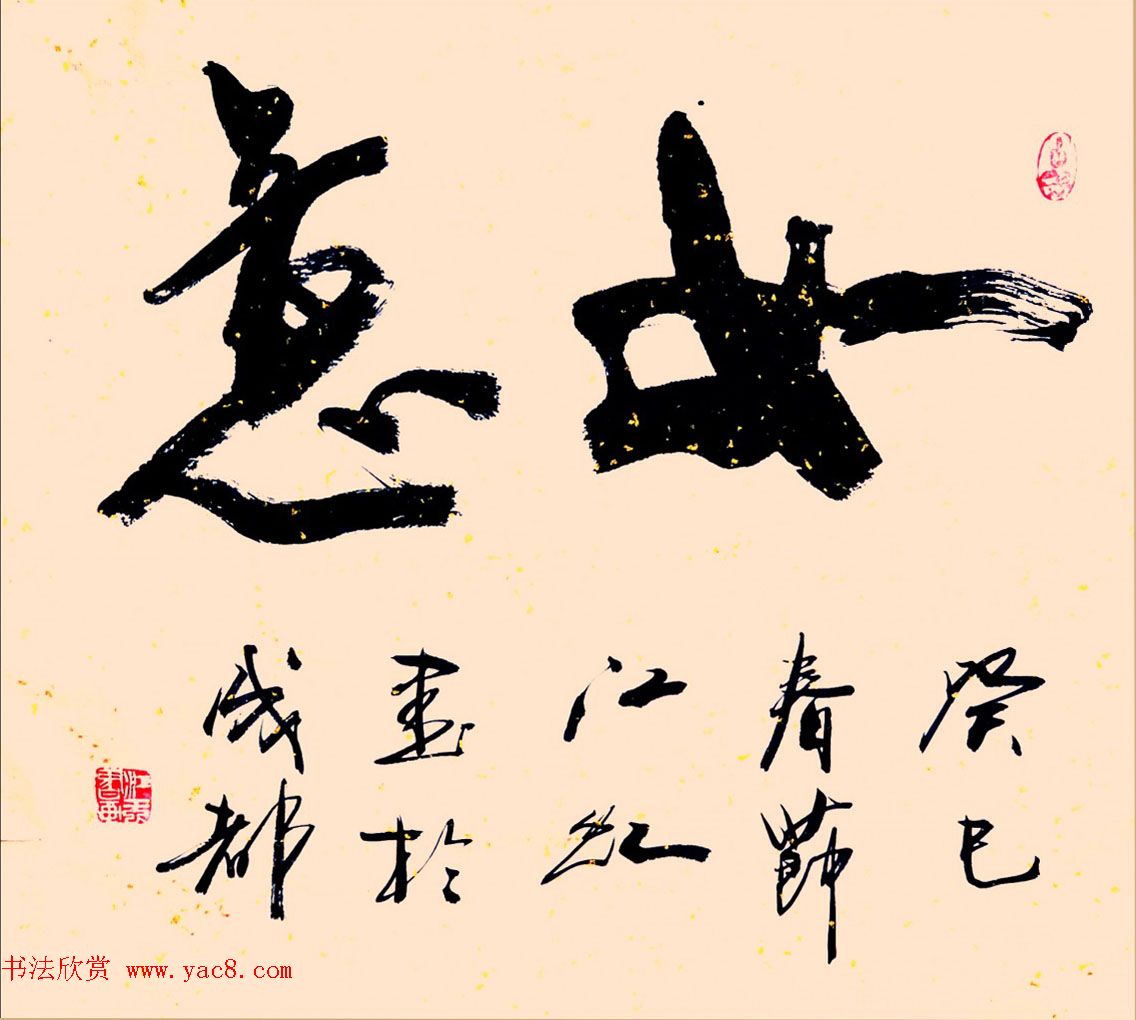 如意
癸巳
春节
江红
書於
成都
书法欣赏 www.yac8.com